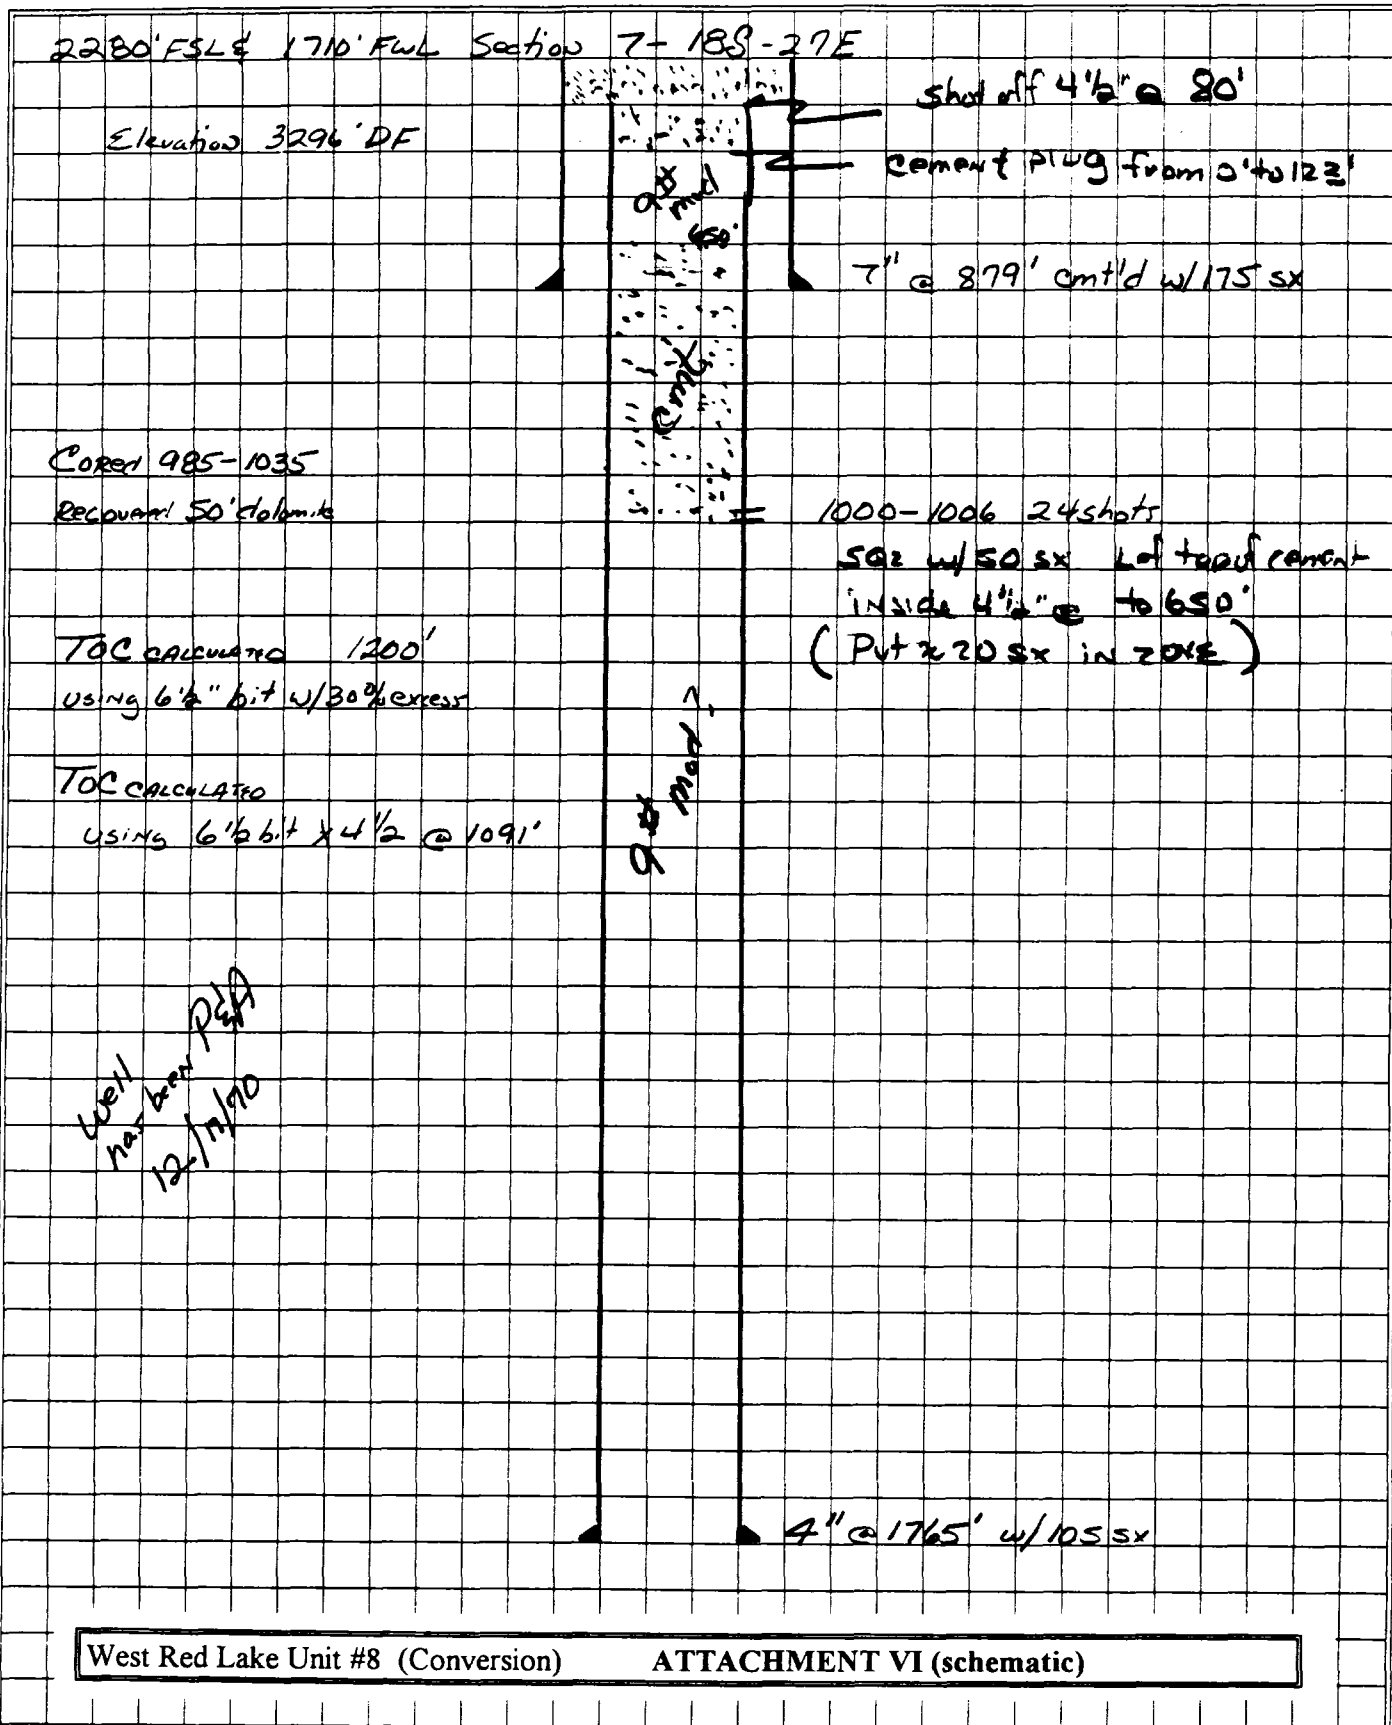 2280' FSL & 1710' FWL Section 7-18S-27E
shot off 4 1/2" @ 80'
Elevation 3296' DF
cement plug from 0' to 122'
9# mud
650'
7" @ 879' cmt'd w/175 sx
cmt
Cored 985-1035
Recovered 50' dolomite
1000-1006 24 shots
SQZ w/ 50 sx Lef top of cement
inside 4 1/2" @ to 650'
(Put ≈ 20 sx in ZONE)
TOC CALCULATED 1200'
USING 6 1/2" bit w/30% excess
TOC CALCULATED
USING 6 1/2 bit x 4 1/2 @ 1091'
9# mud ?
Well
has been P&A
4" @ 1765' w/105 sx
West Red Lake Unit #8 (Conversion) ATTACHMENT VI (schematic)